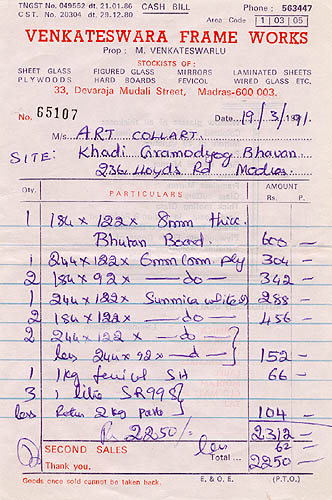 TNGST No. 049552 dt. 21.01.86 CASH BILL Phone : 563447
CST. No. 20304 dt. 29.12.80 Area Code 1 | 03 | 05
VENKATESWARA FRAME WORKS
Prop : M. VENKATESWARLU
STOCKISTS OF :
SHEET GLASS FIGURED GLASS MIRRORS LAMINATED SHEETS
PLYWOODS HARD BOARDS FEVICOL WIRED GLASS ETC.
33, Devaraja Mudali Street, Madras-600 003.
No. 65107 Date 19/3/1991.
M/s ART COLLART.
SITE: Khadi Gramodyog Bhavan
236 Lloyds Rd Madras.
Qty. PARTICULARS AMOUNT
Rs. P.
1 184 x 122 x 8mm thick
Bhutan Board. 600 —
1 244 x 122 x 6mm Comm. ply 304 —
2 184 x 92 x — do — 342 —
1 244 x 122 x Sunmica white 288 —
2 184 x 122 x — do — 456 —
2 244 x 122 x — do —
less 244 x 92 x — d — 152 —
1 1kg fevicol SH 66 —
3 1 litre SR998
less Return 2 kg 104 —
R. 2250/- 2312 —
SECOND SALES less 62
Total ... 2250 —
Thank you.
Goods once sold cannot be taken back. E. & O. E. (P.T.O.)